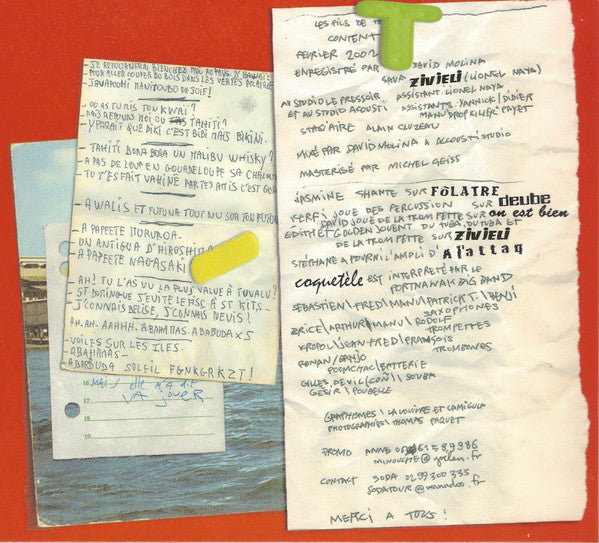 - J'Y RETOURNERAI BIENCHEZ MOI AU PAYS D'HAWAÏ
- POUR ALLER COUPER DU BOIS DANS LES VERTES PRAIRIES
JAVAMOURI MANITOUBO DE SOIF!
- OU AS TU MIS TOU KWAÏ?
- MAIS REPONDS MOI OU TAHITI?
- Y PARAIT QUE BIKI C'EST BIBI MAIS BIKINI.
- TAHITI BORA BORA UN MALIBU WHISKY?
- A PAS DE LOUP EN GOUADELOUPE SA CHALOUPE
- TU T'ES FAIT VAHINÉ PAR TES AMIS C'EST
- A WALIS ET FUTUNA TOUT NU SUR TON FUTON
- A PAPEETE MORUROA
- ON ANTIGUA D'HIROSHIMA
- A PAPEETE NAGASAKI
- AH! TU L'AS VU LA PLUS VALUE À TUVALU?
- ST DOMINGUE J'EVITE LE FISC À ST KITS
- J'CONNAIS BELISE, J'CONNAIS NEVIS!
- AH. AH. AAHHH. ABAHAMAS ABABUDA X5
- VOILES SUR LES ILES.
- ABAHAMAS -
- ABABUDA SOLEIL FGNKGRKZT!
16 MAIS elle n'a qu'à
17 VA JOUER
18
19
LES FILS DE T
CONTENT
FEVRIER 2002
ENREGISTRÉ PAR DAVID MOLINA
SAUF ZIVJELI (LIONEL NAYA)
AU STUDIO LE PRESSOIR ASSISTANT LIONEL NAYA
ET AU STUDIO ACOUSTI ASSISTANTS YANNICK / DIDIER
MANU DROP KILLER PAYET
STAGIAIRE ALAIN CLUZEAU
MIXÉ PAR DAVID MOLINA A ACCOUSTI STUDIO
MASTERISÉ PAR MICHEL GEISS
JASMINE CHANTE SUR FÔLATRE
KERFI JOUE DES PERCUSSION SUR deube
DAVID JOUE DE LA TROMPETTE SUR on est bien
EDITH ET GOLDEN JOUENT DU TUBA, DU TUBA ET
DE LA TROMPETTE SUR ZIVJELI
STÉPHANE A FOURNI L'AMPLI D' A l'attaq
coquetèle EST INTERPRETÉ PAR LE
PORTNAWAK BIG BAND
SEBASTIEN/FRED/MANU/PATRICK T./BENJI
SAXOPHONES
BRICE/ARTHUR/MANU/RODOLF
TROMPETTES
KROPOL/JEAN-FRED/FRANÇOIS
TROMBONES
RONAN/BANJO
POUMCHAC/BATTERIE
GILLES DEVIL (COÑ)/SOUBA
GESIR/POUBELLE
GRAPHISMES/ LA LOUVRE ET CAMIGULA
PHOTOGRAPHIES/ THOMAS PAQUET
PROMO ANNE 06 61 58 99 86
MINOUCHE@
CONTACT SODA 02 99 300 335
SODATOUR@wanadoo.fr
MERCI A TOUS!